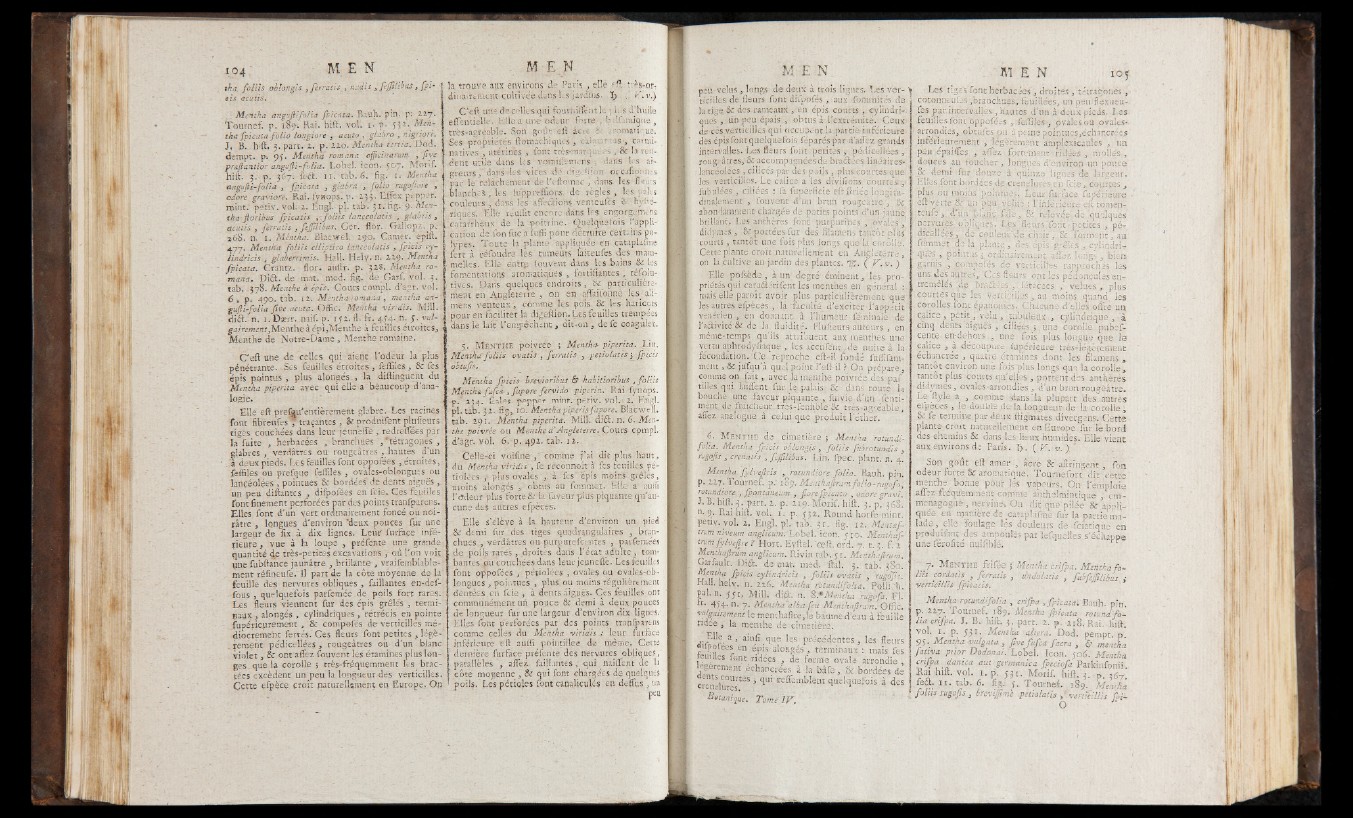 104 M E N
tha foliis oblongis, serratis, nudis, sessilibus, spi-
cis acutis.
Mentha angustifolia spicata. Bauh. pin. p. 227.
Tournef. p. 189. Rai. hist. vol. 1. p. 532. Men-
tha spicata folio longiore, acuto, glabro, nigriori.
J. B. hist. 3. part. 2. p. 220. Mentha tertia. Dod.
dempt. p. 95. Mentha romana officinarum, sive
præstantior angusti-folia. Lobel. icon. 507. Moris.
hist. 3. p. 367. sect. 11. tab. 6. fig. 2. Mentha
angusti-folia, spicata, glabra, folio rugosiore,
odore graviore. Rai. synops. p. 233.
acutis, serratis, sessilibus. Ger. flor. Gallopr. p.
268. n. 1. Mentha. Blacwell. 290. Camer. epist.
477. Mentha foliis elliptico lanceolatis, spicis cy-
lindricis, glaberrimis. Hall. Helv. n. 229. Mentha
spicata. Crantz. flor. austr. p. 328. Mentha ro-
mana. Dict. de mat. med. fig. de Gars. vol. 3.
tab. 378. Menthe à épic. Cours compl. d'agr. vol.
6, p. 490. tab. 12. Mentha romana, mentha an-
gusti-folia sive acuta. Offic. Mentha viridis. Mill.
dict. n. 1. p. 152. fl. fr. 454. n. 5. vul-
gairement, Menthe à épi, Menthe à feuilles étroites,
Menthe de Notre-Dame, Menthe romaine.
C'est une de celles qui aient l'odeur la plus
pénétrante. Ses feuilles étroites, sessiles, & ses
épis pointus, plus alongés, la distinguent du
Mentha piperita avec qui elle a beaucoup d'ana-
logie.
Elle est presqu'entièrement glabre. Les racines
sont fibreuses, traçantes, & produisent plusieurs
tiges couchées dans leur jeunesse, redressées par
la suite, herbacées, branchues, tétragones,
glabres, verdâtres ou rougeâtres, hautes d'un
à deux pieds. Les feuilles sont opposées, étroites,
sessiles ou presque sessiles, ovales-oblongues ou
lancéolées, pointues & bordées de dents aiguës,
un peu distantes, disposées en scie. Ces feuilles
sont finement perforées par des points transparens.
Elles sont d'un vert ordinairement foncé ou noi-
râtre, longues d'environ deux pouces sur une
largeur de six à dix lignes. Leur surface infé-
rieure, vue à la loupe, présente une grande
quantité de très-petites excavations, où l'on voit
une substance jaunâtre, brillante, vraisemblable-
ment résineuse. Il part de la côte moyenne de la
feuille des nervures obliques, saillantes en-des-
sous, quelquefois parsemée de poils fort rares.
Les fleurs viennent sur des épis grêles, termi-
naux, alongés, cylindriques, rétrécis en pointe
supérieurement, & composés de verticilles mé-
diocrement serrés. Ces fleurs sont petites, légè-
rement pédicellées, rougeâtres ou d'un blanc
violet, & ont assez souvent les étamines plus lon-
gues que la corolle; très-fréquemment les brac-
tées excèdent un peu la longueur des verticilles.
Cette espèce croît naturellement en Europe. On
M E N
la trouve aux environs de Paris, elle est très-or-
dinairement cultivée dans les jardins. ♃ (V. v.)
C'est une de celles qui fournissent le plus d'huile
essentielle. Elle a une odeur forte, balsamique,
très-agréable. Son goût est âcre & aromatique.
Ses propriétés stomachiques, carmi-
natives, utérines, sont très-marquées, & la ren-
dent utile dans les vomissemens, dans les ai-
greurs, dans les vices de digestion occasionnés
par le relachement de l'estomac, dans les fleurs
blanches, les suppressions de règles, les pales
couleurs, dans les affections venteuses & hydro-
piques. Elle réussit encore dans les engorgemens
catarrheux de la poitrine. Quelquefois l'appli-
cation de son suc a suffi pour détruire certains po-
lypes. Toute la plante appliquée en cataplasme
sert à résoudre les tumeurs laiteuses des mam-
melles. Elle entre souvent dans les bains & les
fomentations aromatiques, fortifiantes, résolu-
tives. Dans quelques endroits, & particulière-
ment en Angleterre, on en assaisonne les ali-
mens venteux, comme les pois & les haricots
pour en faciliter la digestion. Les feuilles trempées
dans le lait l'empêchant, dit-on, de se coaguler.
5. MENTHE poivrée; Mentha piperita. Lin.
Mentha foliis ovatis, serratis, petiolatis; spicis
obtusis.
Mentha spicis brevioribus & habitioribus, foliis
Menthæ fuscæ, sapore fervido piperis. Rai synops.
p. 234. Eales pepper mint. petiv. vol. 2. Engl.
pl. tab. 31. fig. 10. Mentha piperis sapore. Blacwell.
tab. 291. Mentha piperita. Mill. dict. n. 6. Men-
the poivrée ou Menthe d'Angleterre. Cours compl.
d'agr. vol. 6. p. 492. tab. 12.
Celle-ci voisine, comme j'ai dit plus haut,
du Mentha viridis, se reconnoît à ses feuilles pé-
tiolées, plus ovales, à ses épis moins grêles,
moins alongés, obtus au sommet. Elle a aussi
l'odeur plus forte & la saveur plus piquante qu'au-
cune des autres espèces.
Elle s'élève à la hauteur d'environ un pied
& demi sur des tiges quadrangulaires, bran-
chues, verdâtres ou purpurescentes, parsemées
de poils rares, droites dans l'état adulte, tom-
bantes ou couchées dans leur jeunesse. Les feuilles
sont opposées, pétiolées, ovales ou ovales-ob-
longues, pointues, plus ou moins régulièrement
dentées en scie, à dents aiguës. Ces feuilles ont
communément un pouce & demi à deux pouces
de longueur sur une largeur d'environ dix lignes.
Elles sont perforées par des points transparens
comme celles du Mentha viridis: leur surface
inférieure est aussi pointillée de même. Cette
dernière surface présente des nervures obliques,
parallèles, assez saillantes, qui naissent de la
côte moyenne, & qui sont chargées de quelques
poils. Les pétioles sont canaliculés en dessus, un
peu
M E N
peu velus, longs de deux à trois lignes. Les ver-
ticilles de fleurs sont disposés, aux sommités de
la tige & des rameaux, en épis courts, cylindri-
ques, un peu épais, obtus à l'extrémité. Ceux
de ces verticilles qui occupent la partie inférieure
des épis sont quelquefois séparés par d'assez grands
intervalles. Les fleurs sont petites, pédicellées,
rougeâtres, & accompagnées de bractées linéaires-
lancéolées, ciliées par des poils, plus courtes que
les verticilles. Le calice a les divisions courtes,
subulées, ciliées; la superficie striée longitu-
dinalement, souvent d'un brun rougeâtre, &
abondamment chargée de petits points d'un jaune
brillant. Les anthères sont purpurines, ovales,
didymes, & portées sur des filamens tantôt plus
courts, tantôt une fois plus longs que la corolle.
Cette plante croît naturellement en Angleterre,
on la cultive au jardin des plantes. ♃. (V. v.)
Elle possède, à un degré éminent, les pro-
priétés qui caractérisent les menthes en général:
mais elle paroît avoir plus particulièrement que
les autres espèces, la faculté d'exciter l'appétit
vénérien, en donnant à l'humeur séminale de
l'activité & de la fluidité. Plusieurs auteurs, en
même-temps qu'ils attribuent aux menthes une
vertu aphrodysiaque, les accusent de nuire à la
fécondation. Ce reproche est-il fondé suffisam-
ment, & jusqu'à quel point l'est-il? On prépare,
comme on sait, avec la menthe poivrée des pas-
tilles qui laissent sur le palais & dans toute la
bouche une saveur piquante, suivie d'un senti-
ment de fraîcheur très-sensible & très-agréable,
assez analogue à celui que produit l'éther.
6. MENTHE de cimetière; Mentha rotundi-
folia. Mentha spicis oblongis, foliis subrotundis,
rugosis, crenatis, sessilibus. Lin. spec. plant. n. 4.
Mentha sylvestris, rotundiore folio. Bauh. pin.
p. 227. Tournef. p. 189. Menthastrum folio rugoso,
rotundiore, spontaneum, flore spicato, odore gravi.
J. B. hist. 3. part. 2. p. 219. Moris. hist. 3. p. 368.
n. 9. Rai hist. vol. 1. p. 532. Round horse-mint.
petiv. vol. 2. Engl. pl. tab. 31. fig. 12. Menthas-
trum niveum anglicum. Lobel. icon. 510.
Menthastrum anglicum. Rivin tab. 51. Menthastrum.
Mentha spicis cylindricis, foliis ovatis, rugosis.
Hall. helv. n. 226. Mentha rotundifolia. Pollich.
pal. n. 551. Mill. dict. n. 8. Mentha rugosa. Fl.
fr. 454. n. 7. Mentha alba seu Menthastrum. Offic.
vulgairement le menthastre, le baume d'eau à feuille
ridée, la menthe de cimetière.
Elle a, ainsi que les précédentes, les fleurs
disposées en épis alongés, terminaux: mais ses
feuilles sont ridées, de forme ovale arrondie,
légèrement échancrées à la base, & bordées de
dents courtes, qui ressemblent quelquefois à des
crenelures.
Botanique. Tome IV.
M E N 105
Les tiges sont herbacées, droites, tétragones,
cotonneuses, branchues, feuillées, un peu fléchis-
sées par intervalles, hautes d'un à deux pieds. Les
feuilles sont opposées, sessiles, ovales ou ovales-
arrondies, obtuses ou à peine pointues, échancrées
inférieurement, légèrement amplexicaules, un
peu épaisses, assez fortement ridées, molles,
douces au toucher, longues d'environ un pouce
& demi sur douze à quinze lignes de largeur.
Elles sont bordées de crenelures en scie, courtes,
plus ou moins pointues. Leur surface supérieure
est verte & un peu velue; l'inférieure est tomen-
teuse, d'un blanc sale, & relevée de quelques
nervures obliques. Les fleurs sont petites, pé-
dicellées, de couleur de chair, & forment, au
sommet de la plante, des épis grêles, cylindri-
ques, pointus, ordinairement assez longs, bien
garnis, composés de verticilles rapprochés les
uns des autres. Ces fleurs ont les pédoncules en-
tremêlés de bractées linéaires, velues, plus
courtes que les verticilles, au moins quand les
corolles sont épanouies. Chacune d'elles offre un
calice, petit, velu, tubuleux, cylindrique, à
cinq dents aiguës, ciliées; une corolle pubes-
cente en-dehors, une fois plus longue que le
calice, à découpure supérieure très-légèrement
échancrée, quatre étamines dont les filamens,
tantôt environ une fois plus longs que la corolle,
tantôt plus courts qu'elle, portent des anthères
didymes, ovales-arrondies, d'un brun rougeâtre.
Le style a, comme dans la plupart des autres
espèces, le double de la longueur de la corolle;
& se termine par deux stigmates divergens. Cette
plante croît naturellement en Europe sur le bord
des chemins & dans les lieux humides. Elle vient
aux environs de Paris. ♃. (V. v.)
Son goût est amer, âcre & astringent, son
odeur forte & aromatique. Tournefort dit cette
menthe bonne pour les vapeurs. On l'emploie
assez fréquemment comme anthelmintique, em-
menagogue, nervine. On dit que pilée & appli-
quée en matière de cataplasme sur la partie ma-
lade, elle soulage les douleurs de sciatique en
produisant des ampoules par lesquelles s'échappe
une sérosité nuisible.
7. MENTHE frisée; Mentha crispa. Mentha fo-
liis cordatis, serratis, undulatis, subsessilibus;
verticillis spicatis.
Mentha rotundifolia, crispa, spicata. Bauh. pin.
p. 227. Tournef. 189. Mentha spicata rotundifo-
lia crispa. J. B. hist. 3. part. 2. p. 218. Rai. hist.
vol. 1. p. 532. Mentha altera. Dod. pempt. p.
95.
sativa prior Dodonæi. Lobel. Icon. 506. Mentha
crispa danica aut germanica speciosa Parkinsonii.
Rai hist. vol. 1. p. 531. Moris. hist. 3. p. 367.
sect. 11. tab. 6. fig. 5. Tournef. 189. Mentha
foliis rugosis, brevissimè petiolatis, verticillis spi-
O